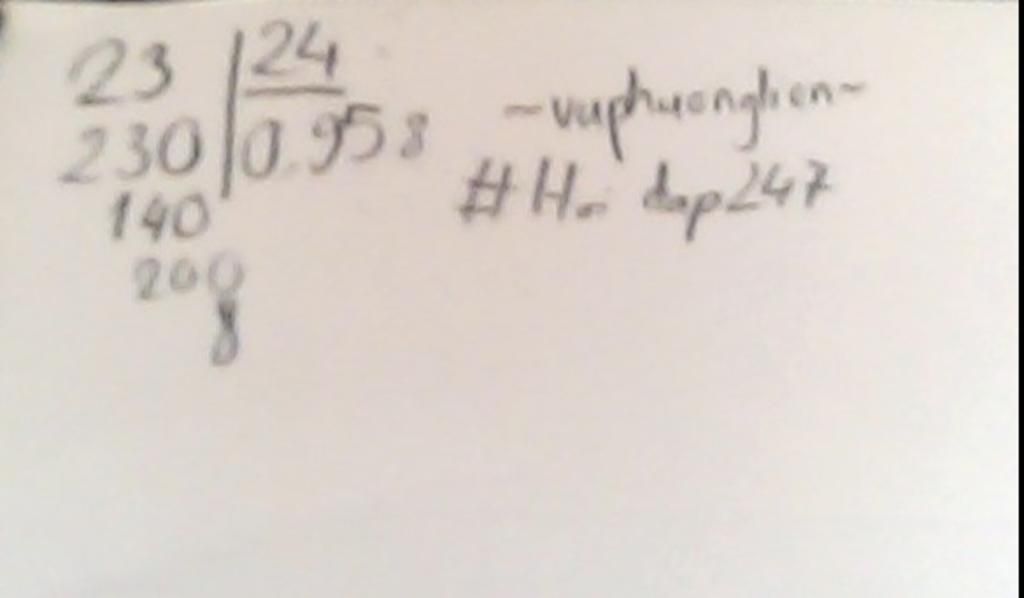 23 | 24
230 | 0.958
140
200
8
~vuphuonglien~
#Hoi dap247